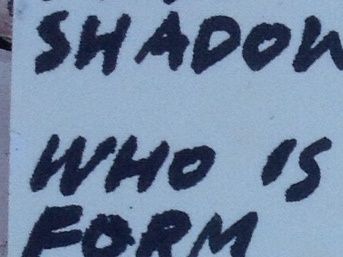 SHADOW
WHO IS
FORM